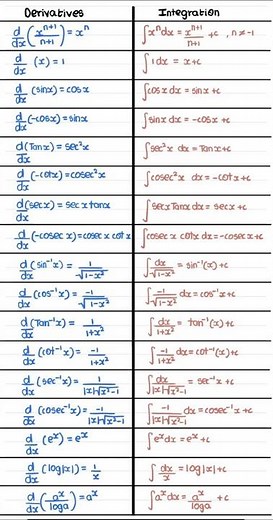 Derivatives Integration
d/dx (x^(n+1)/(n+1)) = x^n ∫x^n dx = x^(n+1)/(n+1) + c , n ≠ -1
d/dx (x) = 1 ∫1 dx = x+c
d/dx (sinx) = cosx ∫cosx dx = sinx + c
d/dx (-cosx) = sinx ∫sinx dx = -cosx + c
d/dx (Tanx) = sec²x ∫sec²x dx = Tanx+c
d/dx (-cotx) = cosec²x ∫cosec²x dx = -cotx + c
d/dx (secx) = secx tanx ∫secx Tanx dx = secx + c
d/dx (-cosec x) = cosec x cot x ∫cosec x cotx dx = -cosec x+c
d/dx (sin⁻¹x) = 1/√(1-x²) ∫dx/√(1-x²) = sin⁻¹(x) + c
d/dx (cos⁻¹x) = -1/√(1-x²) ∫-1/√(1-x²) dx = cos⁻¹x + c
d/dx (Tan⁻¹x) = 1/(1+x²) ∫dx/(1+x²) = tan⁻¹(x) + c
d/dx (cot⁻¹x) = -1/(1+x²) ∫-1/(1+x²) dx = cot⁻¹(x) + c
d/dx (sec⁻¹x) = 1/(|x|√(x²-1)) ∫dx/(|x|√(x²-1)) = sec⁻¹x + c
d/dx (cosec⁻¹x) = -1/(|x|√(x²-1)) ∫-1/(|x|√(x²-1)) dx = cosec⁻¹x + c
d/dx (e^x) = e^x ∫e^x dx = e^x + c
d/dx (log|x|) = 1/x ∫dx/x = log|x| + c
d/dx (a^x/loga) = a^x ∫a^x dx = a^x/loga + c